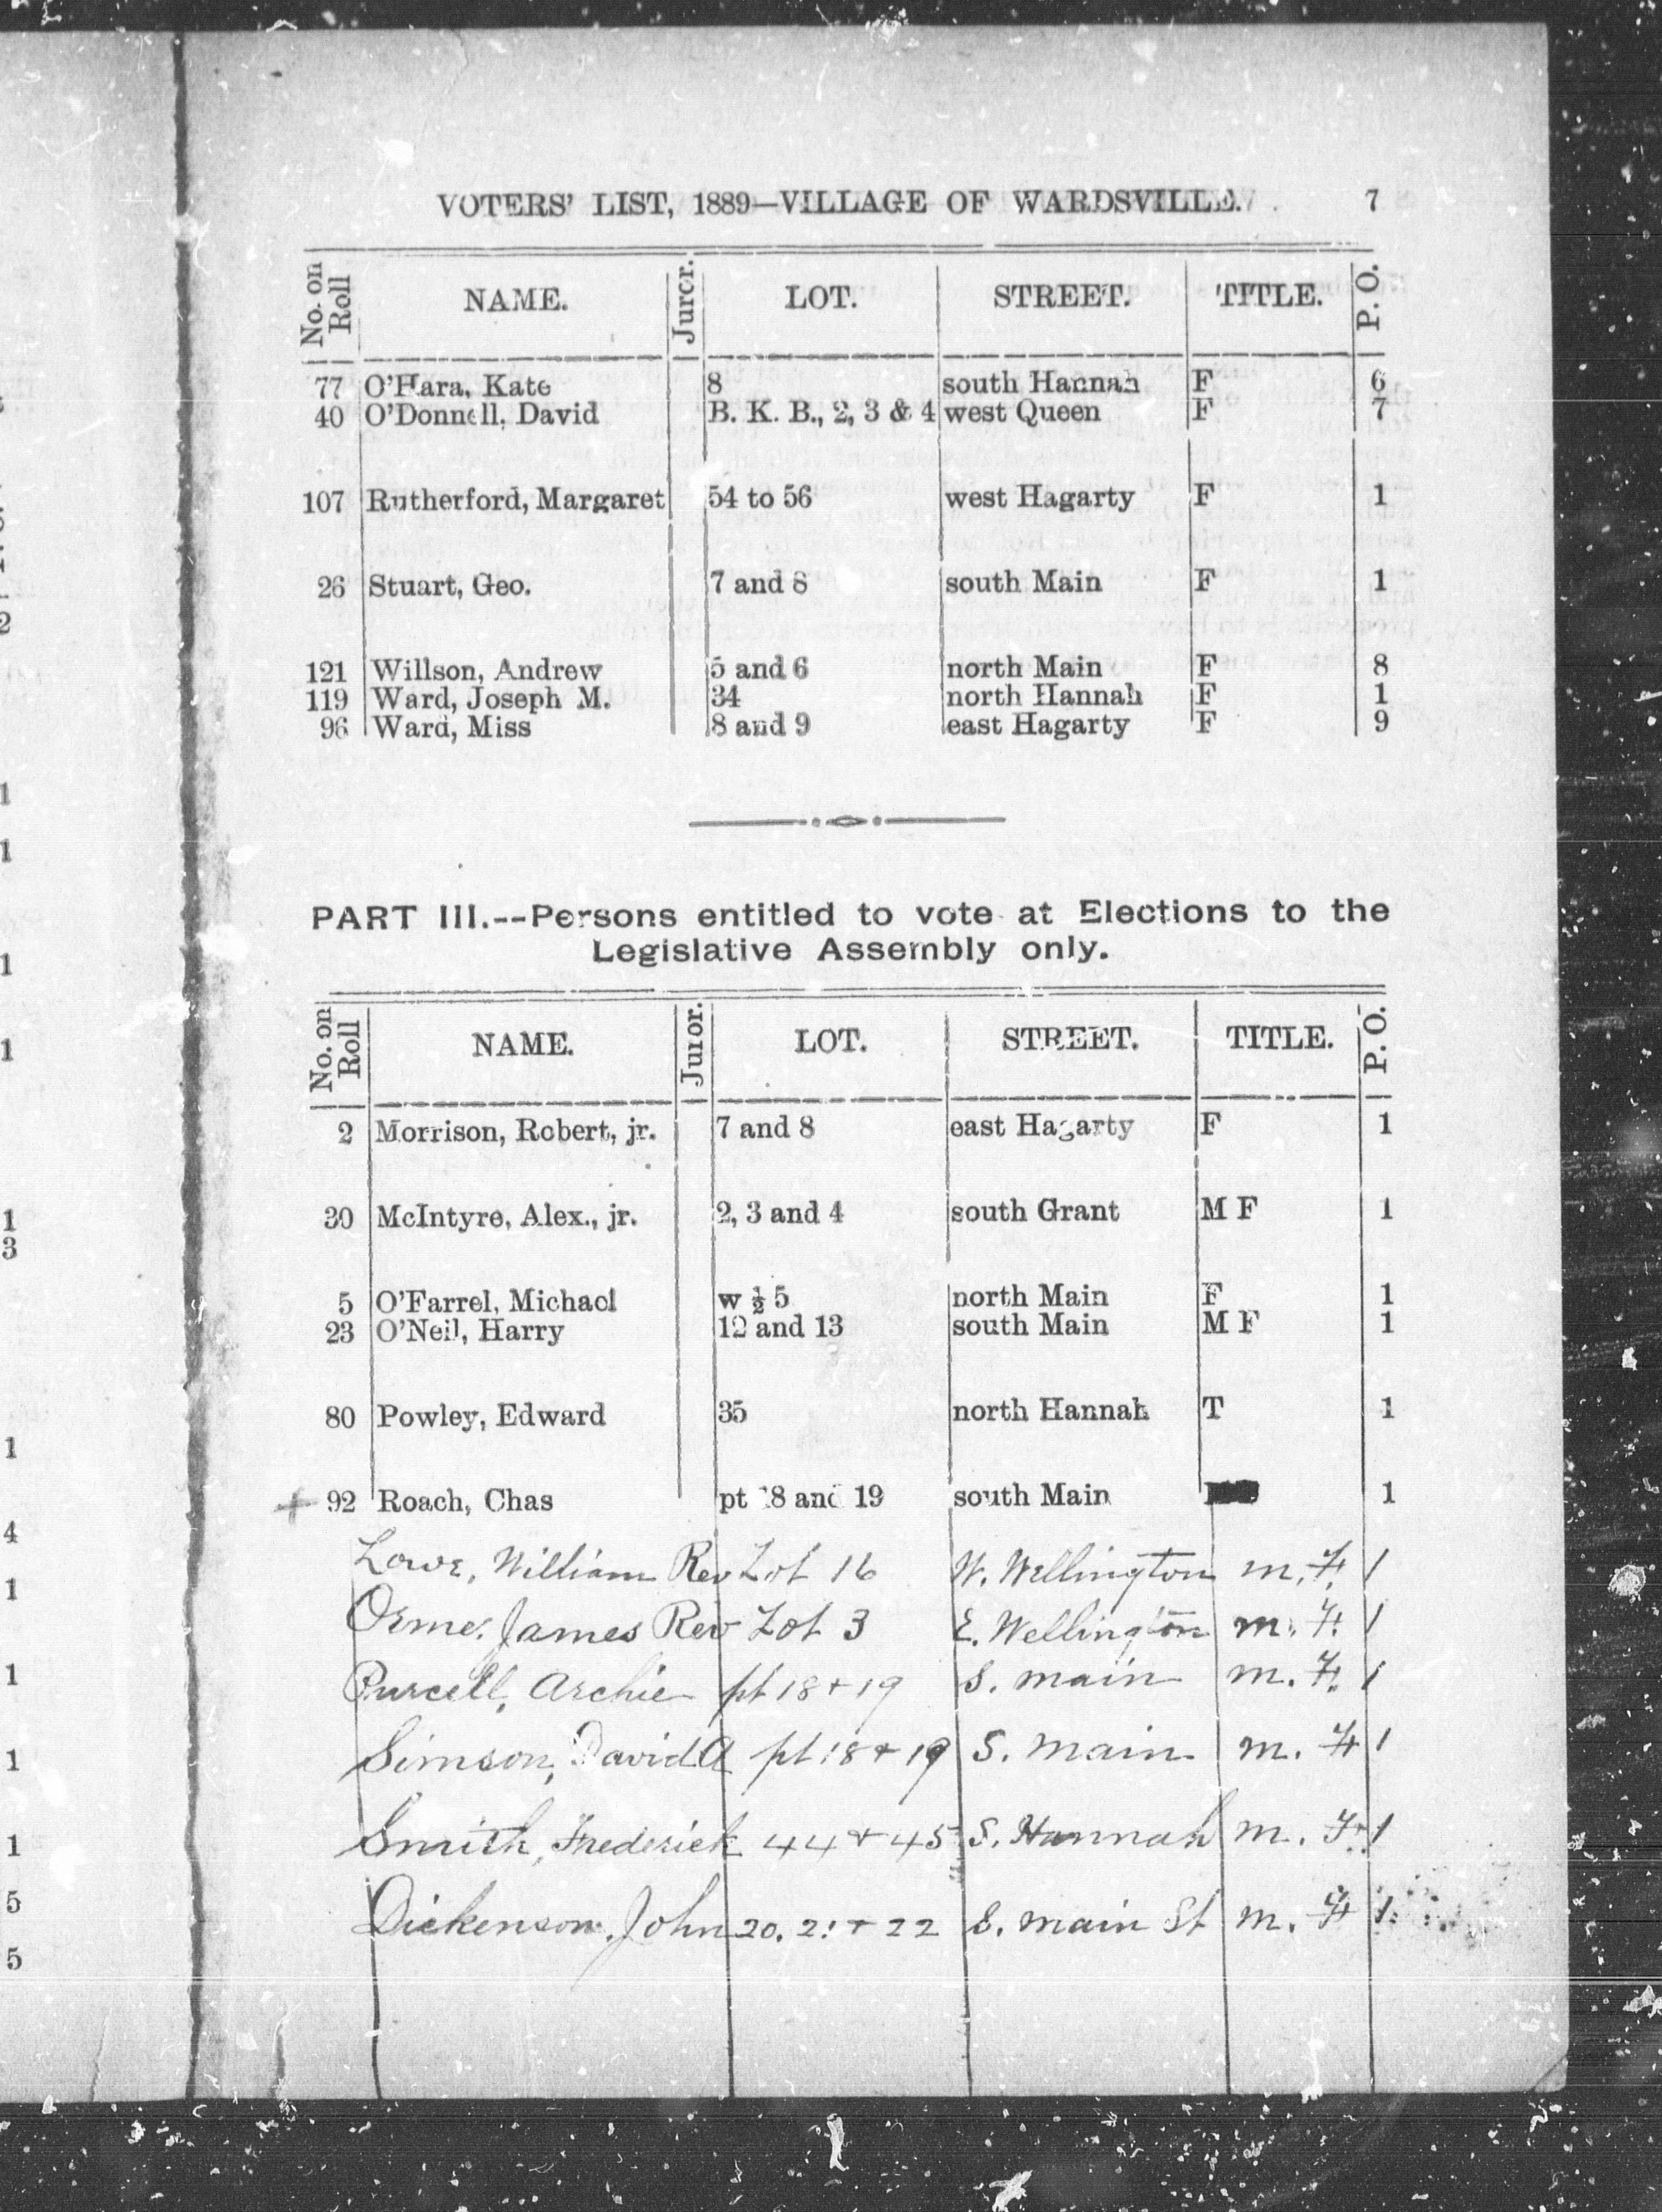 VOTERS' LIST, 1889—VILLAGE OF WARDSVILLE. 7
No. on Roll NAME. Juror. LOT. STREET. TITLE. P. O.
77 O'Hara, Kate 8 south Hannah F 6
40 O'Donnell, David B. K. B., 2, 3 & 4 west Queen F 7
107 Rutherford, Margaret 54 to 56 west Hagarty F 1
26 Stuart, Geo. 7 and 8 south Main F 1
121 Willson, Andrew 5 and 6 north Main F 8
119 Ward, Joseph M. 34 north Hannah F 1
96 Ward, Miss 8 and 9 east Hagarty F 9
PART III.--Persons entitled to vote at Elections to the
Legislative Assembly only.
No. on Roll NAME. Juror. LOT. STREET. TITLE. P. O.
2 Morrison, Robert, jr. 7 and 8 east Hagarty F 1
30 McIntyre, Alex., jr. 2, 3 and 4 south Grant M F 1
5 O'Farrel, Michael w ½ 5 north Main F 1
23 O'Neil, Harry 12 and 13 south Main M F 1
80 Powley, Edward 35 north Hannah T 1
+ 92 Roach, Chas pt 18 and 19 south Main 1
Lowe, William Rev Lot 16 W. Wellington M. F. 1
Orme, James Rev Lot 3 E. Wellington M. F. 1
Purcell, Archie pt 18 + 19 S. Main M. F. 1
Simson, David A pt 18 + 19 S. Main M. F 1
Smith, Frederick 44 + 45 S. Hannah M. F. 1
Dickenson, John 20. 21 + 22 S. Main St M. F 1
1
3
1
1
1
1
2
1
1
1
1
1
3
1
4
1
1
1
1
5
5